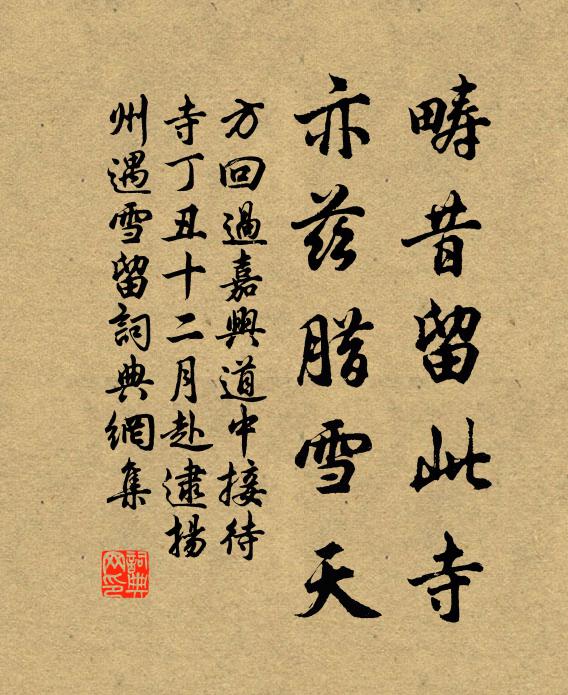 疇昔留此寺
亦茲腊雪天
方回過嘉興道中接待
寺丁丑十二月赴逮揚
州遇雪留詞典網集
詞典网印